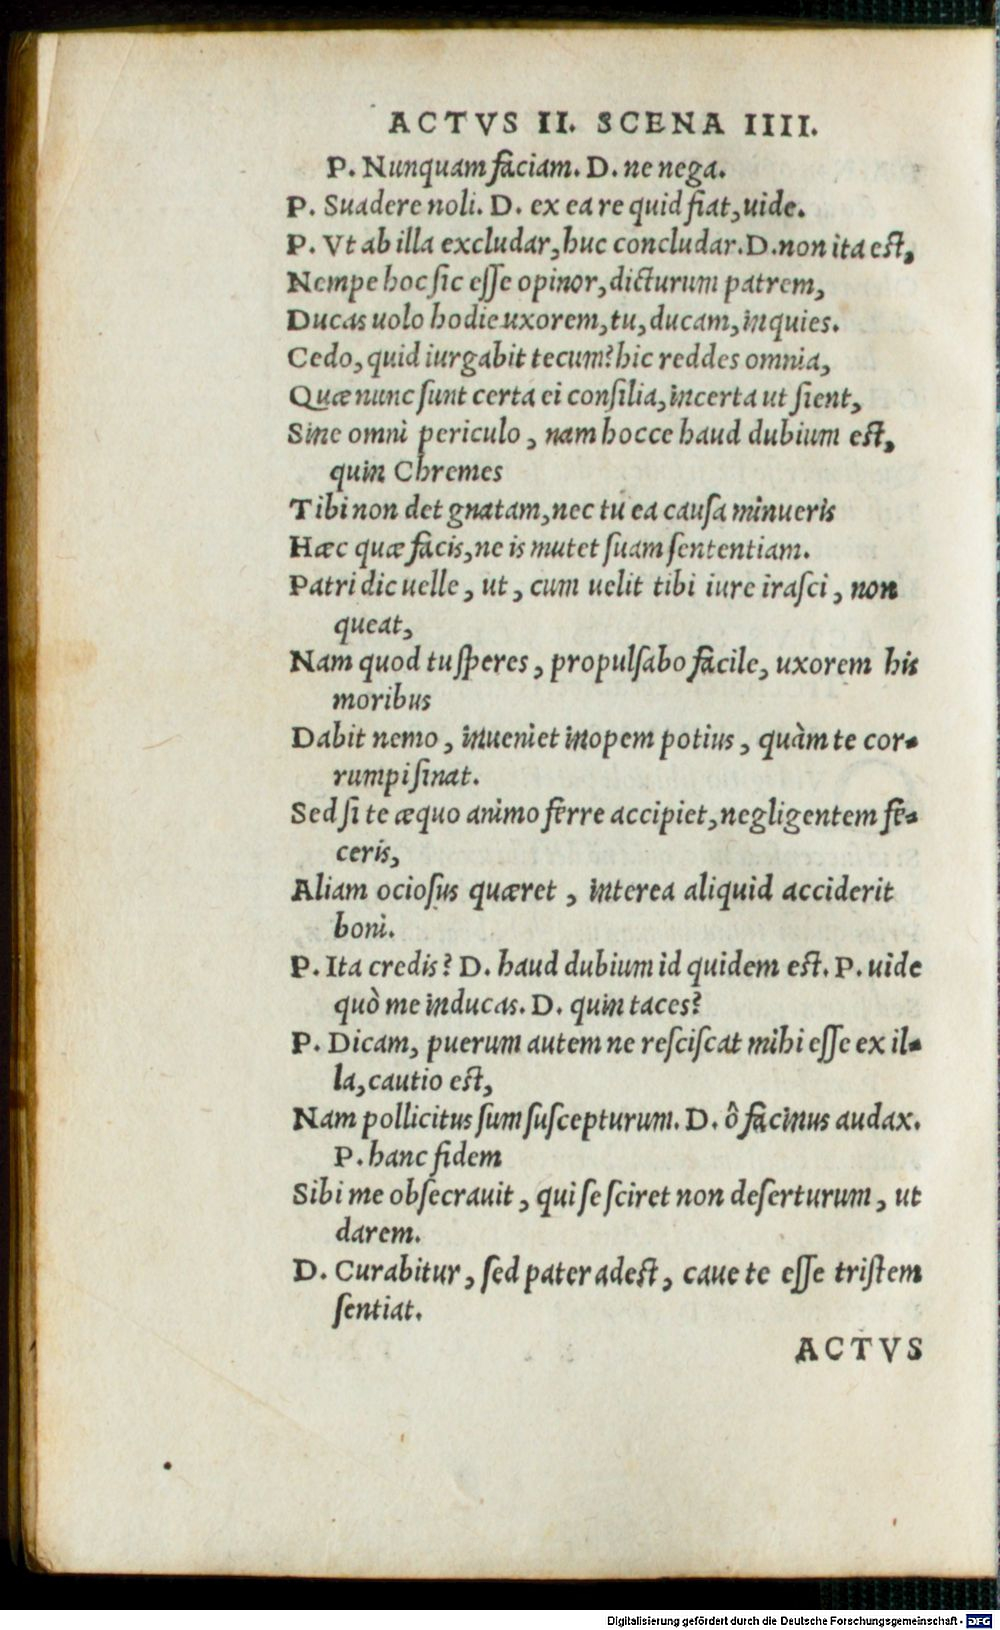 ACTVS II. SCENA IIII.
P. Nunquam faciam. D. ne nega.
P. Suadere noli. D. ex ea re quid fiat, uide.
P. Vt ab illa excludar, huc concludar. D. non ita est,
Nempe hoc sic esse opinor, dicturum patrem,
Ducas uolo hodie uxorem, tu, ducam, inquies.
Cedo, quid iurgabit tecum? hic reddes omnia,
Quæ nunc sunt certa ei consilia, incerta ut sient,
Sine omni periculo, nam hocce haud dubium est,
quin Chremes
Tibi non det gnatam, nec tu ea causa minueris
Hæc quæ facis, ne is mutet suam sententiam.
Patri dic uelle, ut, cum uelit tibi iure irasci, non
queat,
Nam quod tu speres, propulsabo facile, uxorem his
moribus
Dabit nemo, inueniet inopem potius, quàm te cor-
rumpi sinat.
Sed si te æquo animo ferre accipiet, negligentem fe-
ceris,
Aliam ociosus quæret, interea aliquid acciderit
boni.
P. Ita credis? D. haud dubium id quidem est. P. uide
quò me inducas. D. quin taces?
P. Dicam, puerum autem ne resciscat mihi esse ex il-
la, cautio est,
Nam pollicitus sum suscepturum. D. ô facinus audax.
P. hanc fidem
Sibi me obsecrauit, qui se sciret non deserturum, ut
darem.
D. Curabitur, sed pater adest, caue te esse tristem
sentiat.
ACTVS
Digitalisierung gefördert durch die Deutsche Forschungsgemeinschaft - DFG